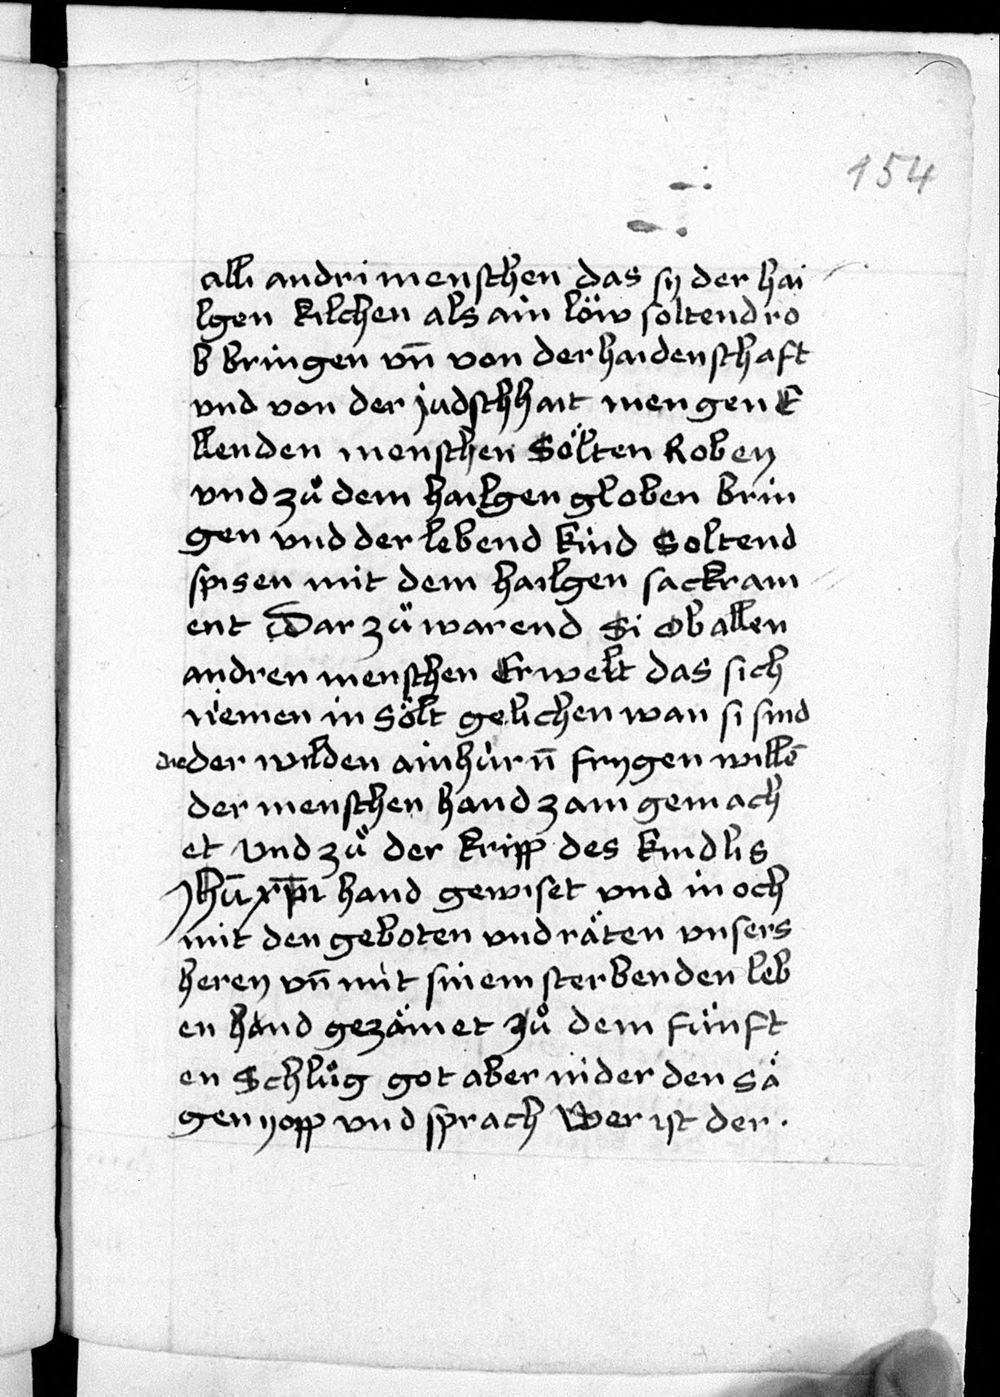 154
alli andri menschen das sy der hai
lgen kilchen als ain löw soltend ro
b bringen vn̄ von der haidenschaft
vnd von der judschhait mengen E
llenden menschen Sölten Roben
vnd zuͦ dem hailgen globen brin
gen vnd der lebend kind Soltend
spisen mit dem hailgen sackram
ent Dar zuͦ warend Si Ob allen
andren menschen Erwelt das sich
niemen in Sölt gelichen wan si sind
die der wilden ainhürn̄ frygen willē
der menschen hand zam gemach
et Vnd zuͦ der kripp des kindlis
Jhū xp̄i hand gewiset vnd in och
mit den geboten vnd räten vnsers
heren vn̄ mit sinem sterbenden leb
en hand gezämet Zuͦ dem fünft
en Schluͦg got aber nider den Sä
gen yopp vnd sprach Wer ist der.